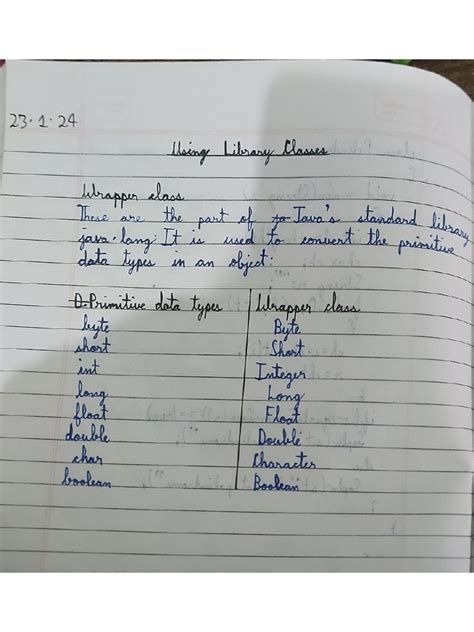 23·1·24
Using Library Classes
Wrapper class
These are the part of Java's standard library
java.lang. It is used to convert the primitive
data types in an object.
Primitive data types | Wrapper class
byte | Byte
short | Short
int | Integer
long | Long
float | Float
double | Double
char | Character
boolean | Boolean